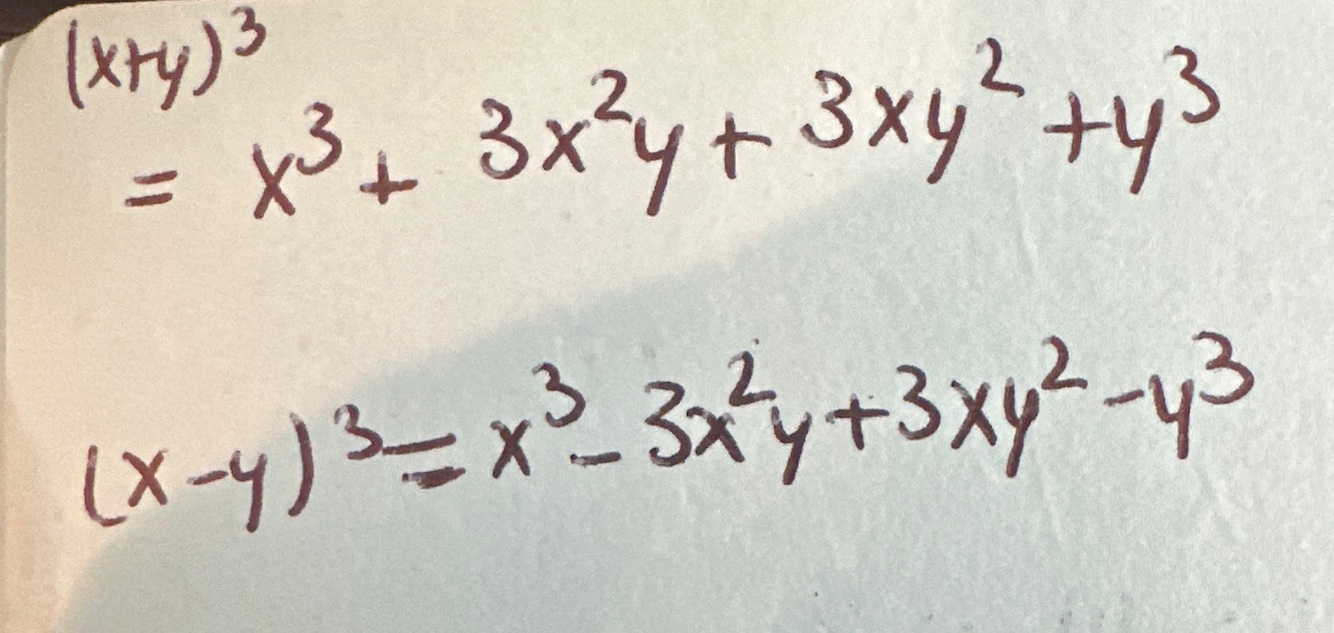 (x+y)³
= x³ + 3x²y + 3xy² + y³
(x-y)³ = x³ - 3x²y + 3xy² - y³